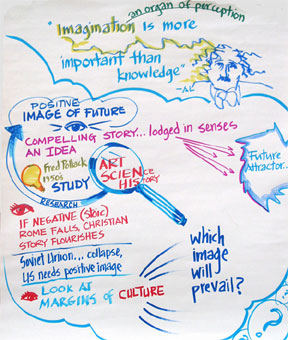 an organ of perception
"Imagination is more
important than
knowledge"
-AL
POSITIVE
IMAGE OF FUTURE
COMPELLING STORY... lodged in senses
AN IDEA
Fred Pollack
in 50s
STUDY
RESEARCH
ART
SCIENCE
HISTORY
Future
Attractor...
IF NEGATIVE (Stoic)
ROME FALLS, CHRISTIAN
STORY FLOURISHES
Soviet Union... collapse,
US needs positive image
LOOK AT
MARGINS of CULTURE
Which
image
will
prevail?
?